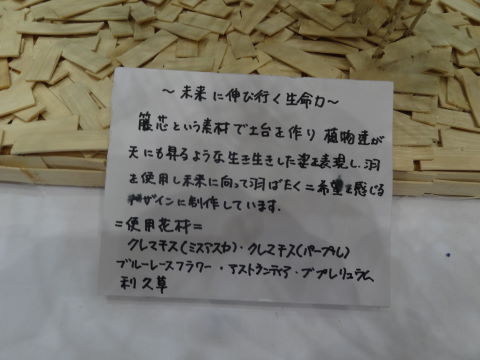 ～未来に伸び行く生命力～
籐芯という素材で土台を作り 植物達が
天にも昇るような生き生きした姿を表現し、羽
を使用し未来に向って羽ばたく＝希望を感じる
デザインに制作しています.
＝使用花材＝
クレマチス(ミスアスカ)・クレマチス(パープル)
ブルーレースフラワー・アストランティア・ブプレリュウム
利久草